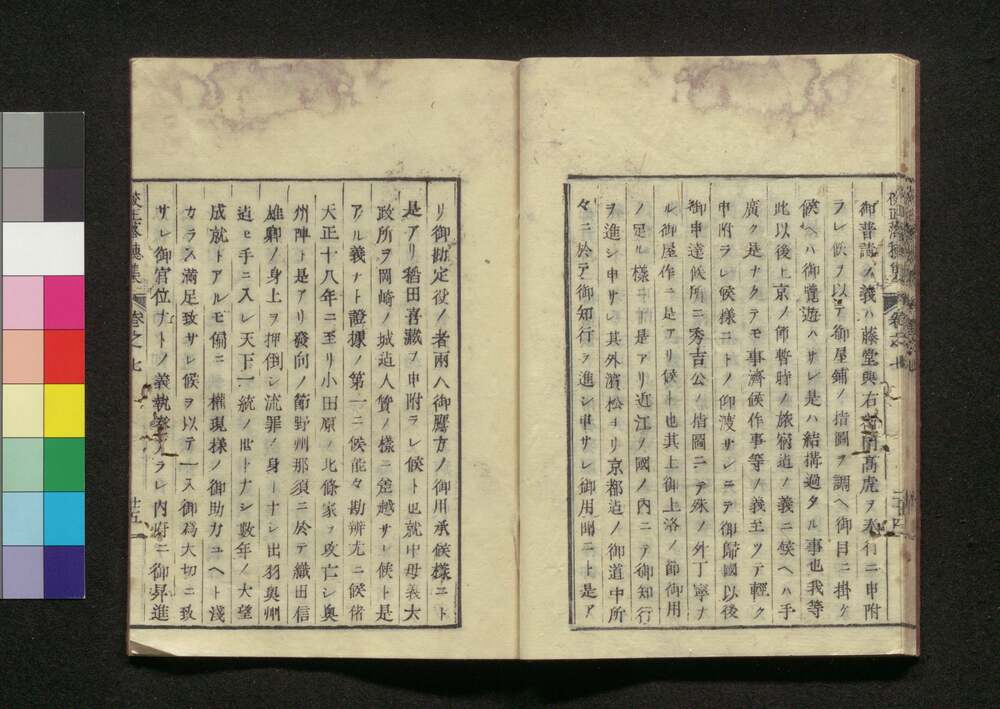 御普請ノ義ハ藤堂與右衛門高虎ヲ奉行ニ申附
ラレ候ヲ以テ御屋鋪ノ指圖ヲ調ヘ御目ニ掛ケ
候ヘハ御覽遊ハサレ是ハ結構過タル事也我等
此以後上京ノ節暫時ノ旅宿迠ノ義ニ候ヘハ手
廣ク是ナクテモ事濟候作事等ノ義至ツテ輕ク
申附ラレ候樣ニトノ仰渡サレニテ御歸國以後
御申達候所ニ秀吉公ノ指圖ニテ殊ノ外丁寧ナ
ル御屋作ニ是アリ候ト也其上御上洛ノ節御用
ノ足ル樣ニト是アリ近江ノ國ノ内ニテ御知行
ヲ進シ申サレ其外濱松ヨリ京都迠ノ御道中所
々ニ於テ御知行ヲ進シ申サレ御用晹ニト是ア
校正落穗集
卷之七
二十四
リ御勘定役ノ者兩人御鷹方ノ御用承候樣ニト
是アリ稻田喜藏ヲ申附ラレ候ト也就中母義大
政所ヲ岡崎ノ城迠人質ノ樣ニ差越サレ候ト是
アル義ナト證據ノ第一ニ候能々勘辨尤ニ候偖
天正十八年ニ至リ小田原ノ北條家ヲ攻亡シ奥
州陣ト是アリ發向ノ節野州那須ニ於テ織田信
雄卿ノ身上ヲ押倒シ流罪ノ身トナシ出羽奥州
迠モ手ニ入レ天下一統ノ世トナシ數年ノ大望
成就トアルモ偏ニ權現樣ノ御助力ユヘト淺
カラス滿足致サレ候ヲ以テ一入御爲大切ニ致
サレ御官位ナトノ義執奏アラレ内府ニ御昇進
校正落穗集
卷之七
廿五